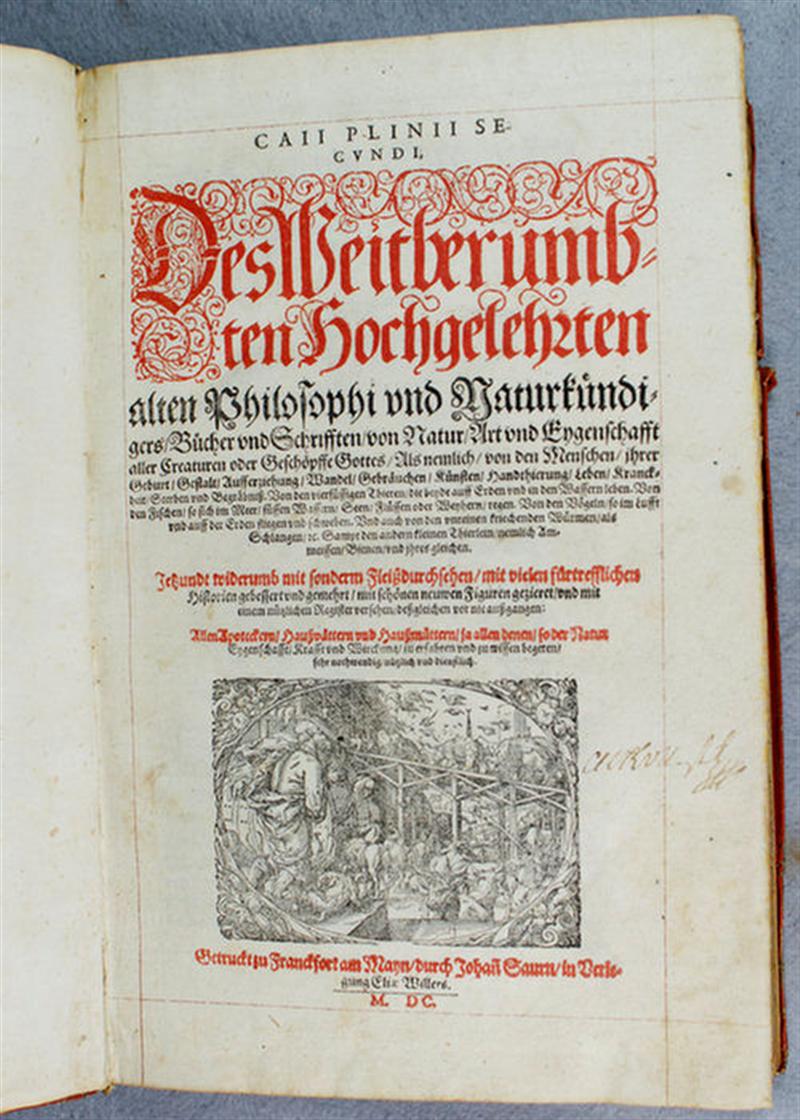 CAII PLINII SE-
CVNDI,
Des Weitberumb-
ten Hochgelehrten
alten Philosophi vnd Naturkündi-
gers/Bücher vnd Schrifften/von Natur/Art vnd Eygenschafft
aller Creaturen oder Geschöpffe Gottes/Als nemlich/von den Menschen/jhrer
Geburt/Gestalt/Aufferziehung/Wandel/Gebräuchen/Künsten/Handthierung/Leben/Kranck-
heit/Sterben vnd Begräbnuß. Von den vierfüssigen Thieren/die beyde auff Erden vnd in den Wassern leben. Von
den Fischen/so sich im Meer/süssen Wassern/Seen/Flüssen oder Weyhern/regen. Von den Vögeln/so im Lufft
vnd auff der Erden fliegen vnd schweben. Vnd auch von den vnreinen kriechenden Würmen/als
Schlangen/ꝛc. Sampt den andern kleinen Thierlein/nemlich Am-
meissen/Bienen/vnd jhres gleichen.
Jetzundt widerumb mit sonderm Fleiß durchsehen/mit vielen fürtrefflichen
Historien gebessert vnd gemehrt/mit schönen neuwen Figuren gezieret/vnd mit
einem nützlichen Register versehen/deßgleichen vor nie außgangen:
Allen Apoteckern/Haußvättern vnd Haußmüttern/ja allen denen/so der Natur
Eygenschafft/Krafft vnd Wirckung/zu erfahren vnd zu wissen begeren/
sehr nothwendig/nützlich vnd dienstlich.
Getruckt zu Franckfort am Mayn/durch Johañ Saurn/in Verle-
gung Elix Willers.
M. DC.